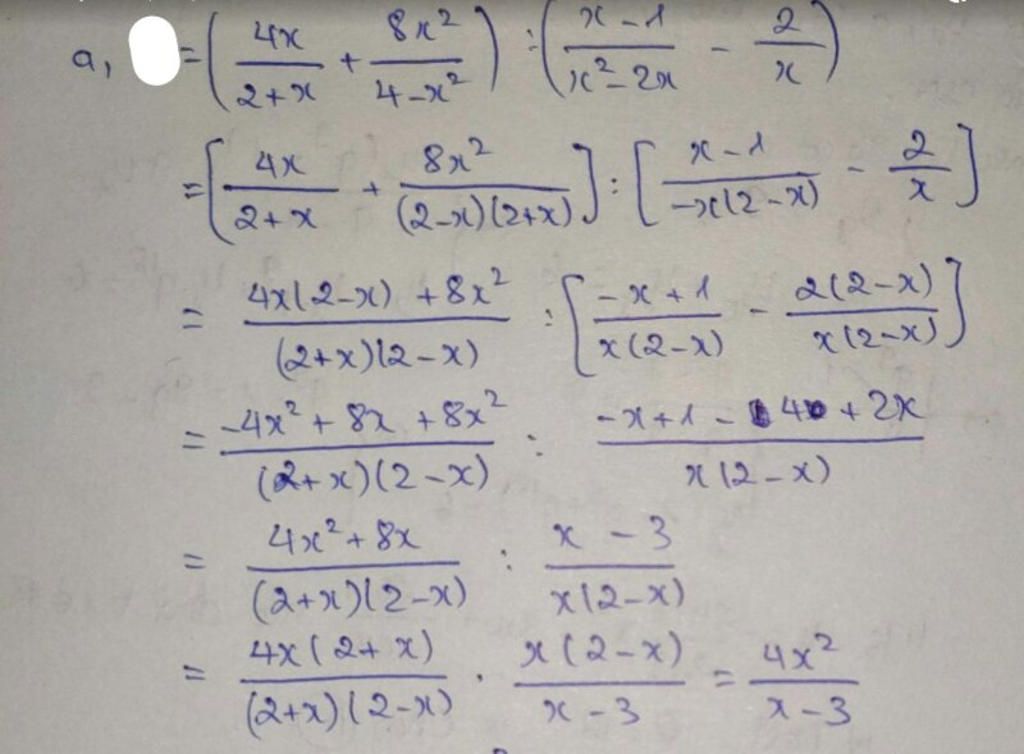 a, = ( 4x / 2+x + 8x² / 4-x² ) : ( x-1 / x²-2x - 2 / x )
= [ 4x / 2+x + 8x² / (2-x)(2+x) ] : [ x-1 / -x(2-x) - 2 / x ]
= 4x(2-x) +8x² / (2+x)(2-x) : [ -x+1 / x(2-x) - 2(2-x) / x(2-x) ]
= -4x² + 8x + 8x² / (2+x)(2-x) : -x+1 - 4 + 2x / x(2-x)
= 4x² + 8x / (2+x)(2-x) : x - 3 / x(2-x)
= 4x(2+x) / (2+x)(2-x) . x(2-x) / x-3 = 4x² / x-3